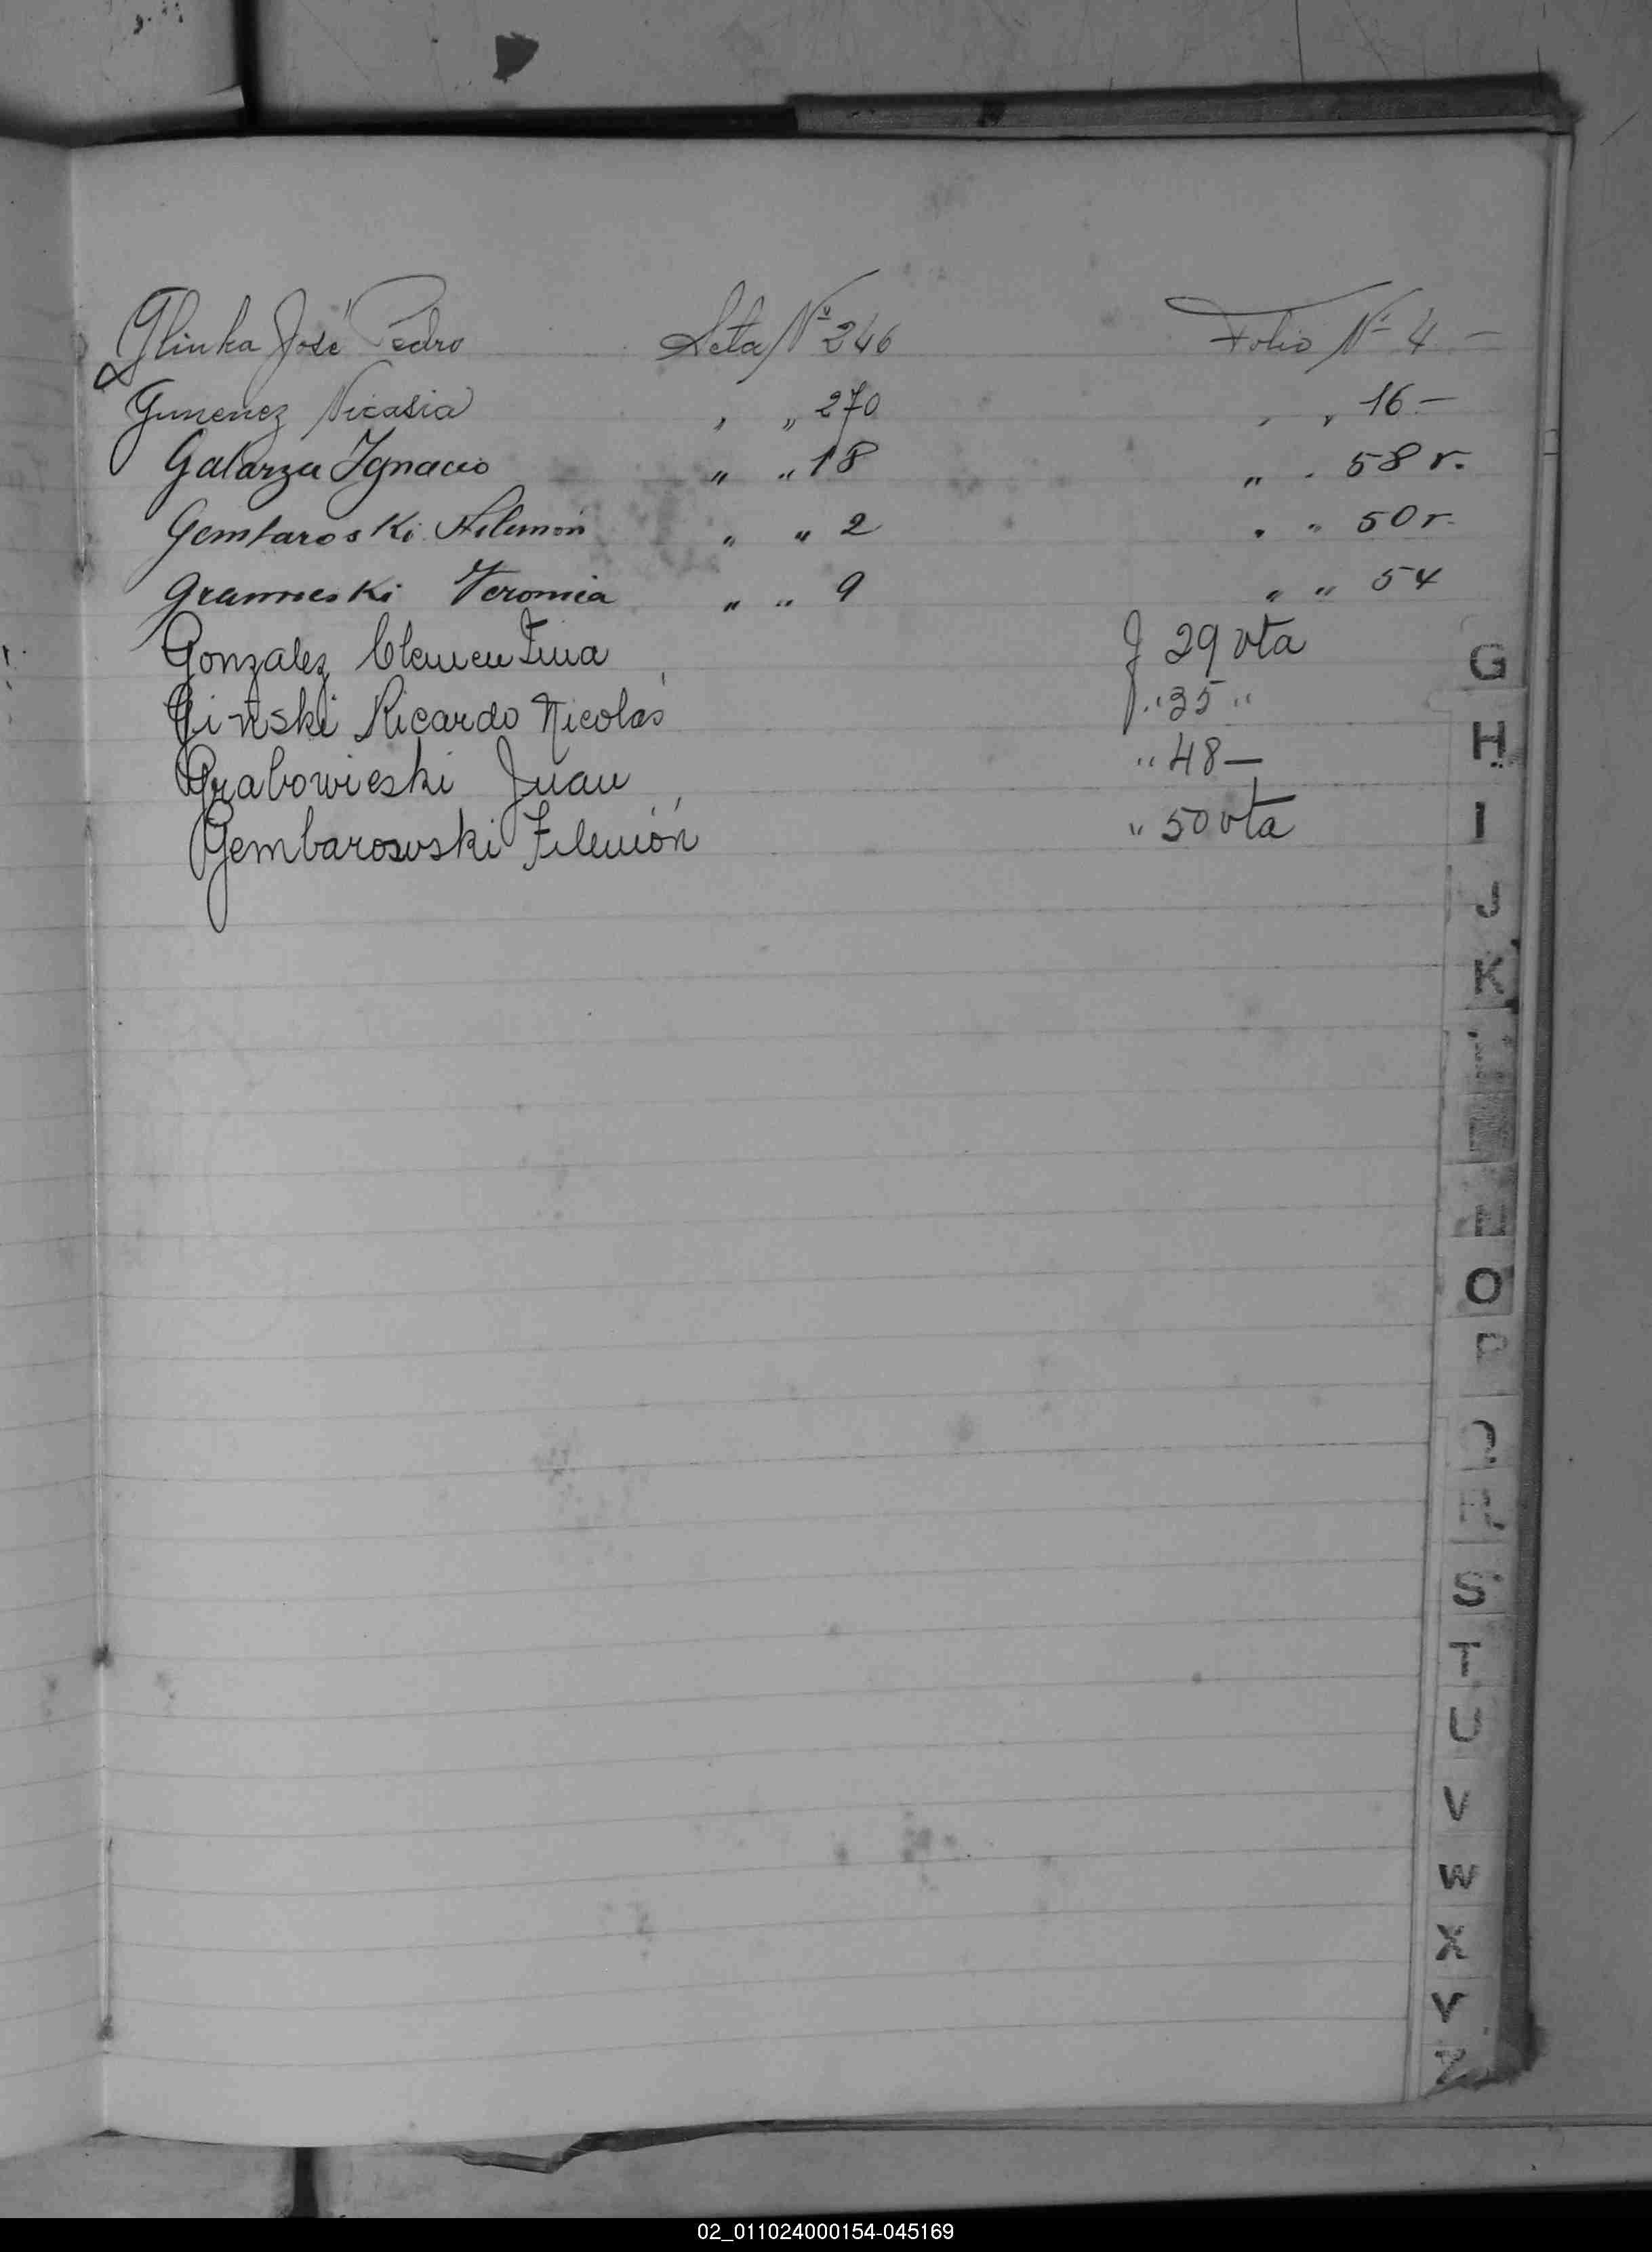 Glinka José Pedro Acta Nº 246 Folio Nº 4 -
Gimenez Nicasia , „ 270 , , 16 -
Galarza Ignacio „ „ 18 „ . 58 r.
Gembaroski Filemón „ „ 2 „ „ 50 r.
Veronica „ „ 9 „ „ 54
Gonzalez Clementina f 29 vta
Ginski Ricardo Nicolás f. „ 35 „
Grabowieski Juan „ 48 —
Gembarowski Filemón „ 50 vta
G
H
I
J
K
O
P
Q
R
S
T
U
V
W
X
Y
Z
02_011024000154-045169